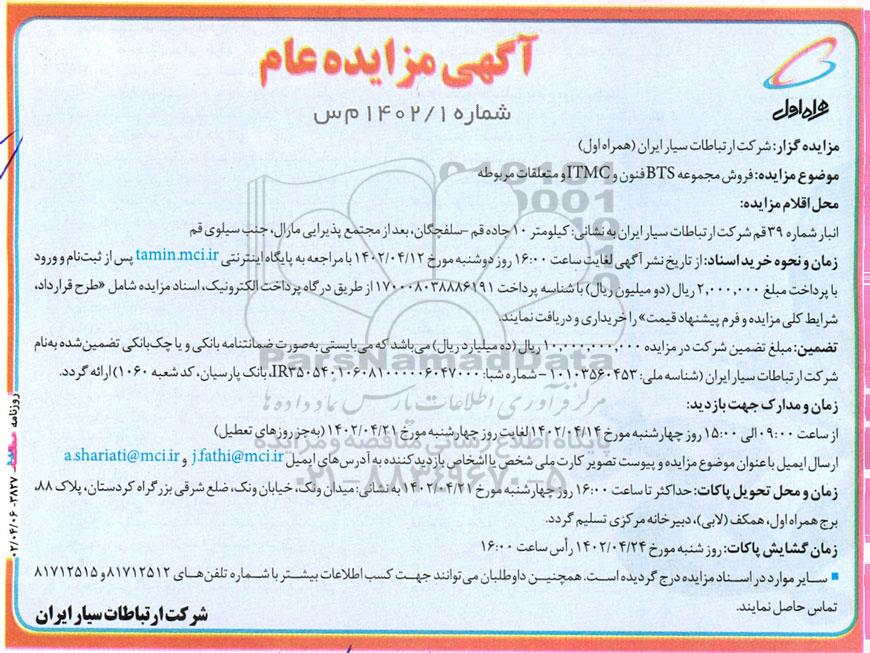 آگهی مزایده عام
شماره ۱۴۰۲/۱ م س
همراه اول
مزایده گزار: شرکت ارتباطات سیار ایران (همراه اول)
موضوع مزایده: فروش مجموعه BTS فنون و ITMC و متعلقات مربوطه
محل اقلام مزایده:
انبار شماره ۳۹ قم شرکت ارتباطات سیار ایران به نشانی: کیلومتر ۱۰ جاده قم -سلفچگان، بعد از مجتمع پذیرایی مارال، جنب سیلوی قم
زمان و نحوه خرید اسناد: از تاریخ نشر آگهی لغایت ساعت ۱۶:۰۰ روز دوشنبه مورخ ۱۴۰۲/۰۴/۱۲ با مراجعه به پایگاه اینترنتی tamin.mci.ir پس از ثبت‌نام و ورود
با پرداخت مبلغ ۲,۰۰۰,۰۰۰ ریال (دو میلیون ریال) با شناسه پرداخت ۱۷۰۰۰۸۰۳۸۸۸۶۱۹۱ از طریق درگاه پرداخت الکترونیک، اسناد مزایده شامل «طرح قرارداد،
شرایط کلی مزایده و فرم پیشنهاد قیمت» را خریداری و دریافت نمایند.
تضمین: مبلغ تضمین شرکت در مزایده ۱۰,۰۰۰,۰۰۰,۰۰۰ ریال (ده میلیارد ریال) می‌باشد که می‌بایستی به‌صورت ضمانتنامه بانکی و یا چک‌بانکی تضمین‌شده به‌نام
شرکت ارتباطات سیار ایران (شناسه ملی: ۱۰۱۰۳۵۶۰۴۵۳ – شماره شبا: IR۳۵۰۵۴۰۱۰۶۰۸۱۰۰۰۰۰۶۰۴۷۰۰۰، بانک پارسیان، کد شعبه ۱۰۶۰) ارائه گردد.
زمان و مدارک جهت بازدید:
از ساعت ۰۹:۰۰ الی ۱۵:۰۰ روز چهارشنبه مورخ ۱۴۰۲/۰۴/۱۴ لغایت روز چهارشنبه مورخ ۱۴۰۲/۰۴/۲۱ (به‌جز روزهای تعطیل)
ارسال ایمیل با عنوان موضوع مزایده و پیوست تصویر کارت ملی شخص یا اشخاص بازدیدکننده به آدرس‌های ایمیل j.fathi@mci.ir و a.shariati@mci.ir
زمان و محل تحویل پاکات: حداکثر تا ساعت ۱۶:۰۰ روز چهارشنبه مورخ ۱۴۰۲/۰۴/۲۱ به نشانی: میدان ونک، خیابان ونک، ضلع شرقی بزرگراه کردستان، پلاک ۸۸،
برج همراه اول، همکف (لابی)، دبیرخانه مرکزی تسلیم گردد.
زمان گشایش پاکات: روز شنبه مورخ ۱۴۰۲/۰۴/۲۴ رأس ساعت ۱۶:۰۰
سایر موارد در اسناد مزایده درج گردیده است. همچنین داوطلبان می‌توانند جهت کسب اطلاعات بیشتر با شماره تلفن‌های ۸۱۷۱۲۵۱۲ و ۸۱۷۱۲۵۱۵
تماس حاصل نمایند.
شرکت ارتباطات سیار ایران
ParsNamadData
مرکز فرآوری اطلاعات پارس نماد داده ها
پایگاه اطلاع رسانی مناقصه و مزایده
۰۲۱-۸۸۳۴۹۶۷۰-۵
روزنامه
۰۲/۰۴/۰۶ -۳۸۳۷